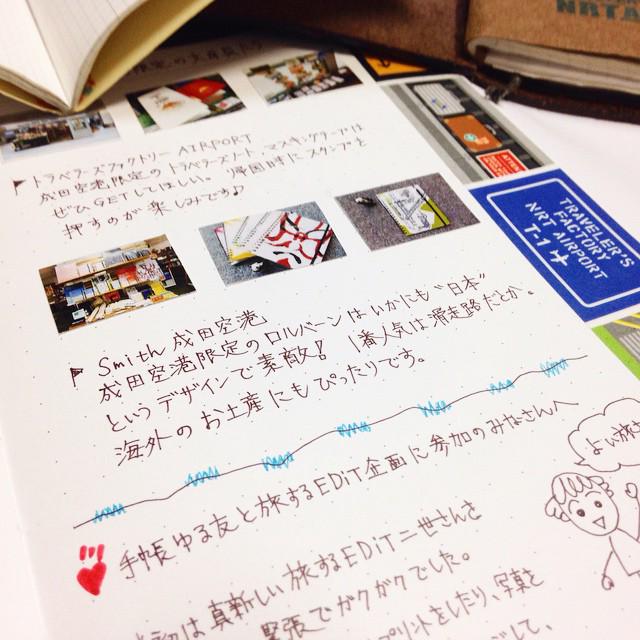 NRTA
限定の文房具たち
トラベラーズファクトリー AIRPORT
成田空港限定のトラベラーズノート、マスキングテープは
ぜひGETしてほしい。帰国時にスタンプを
押すのが楽しみです♪
TRAVELER'S
FACTORY
NRT AIRPORT
T-1
Smith 成田空港
成田空港限定のロルバーンはいかにも"日本"
というデザインで素敵! 1番人気は滑走路だとか。
海外のお土産にもぴったりです。
手帳ゆる友と旅するEDiT企画に参加のみなさんへ
よい旅
真新しい旅するEDiT二世さんを
緊張でガクガクでした。
プリントをしたり、写真を